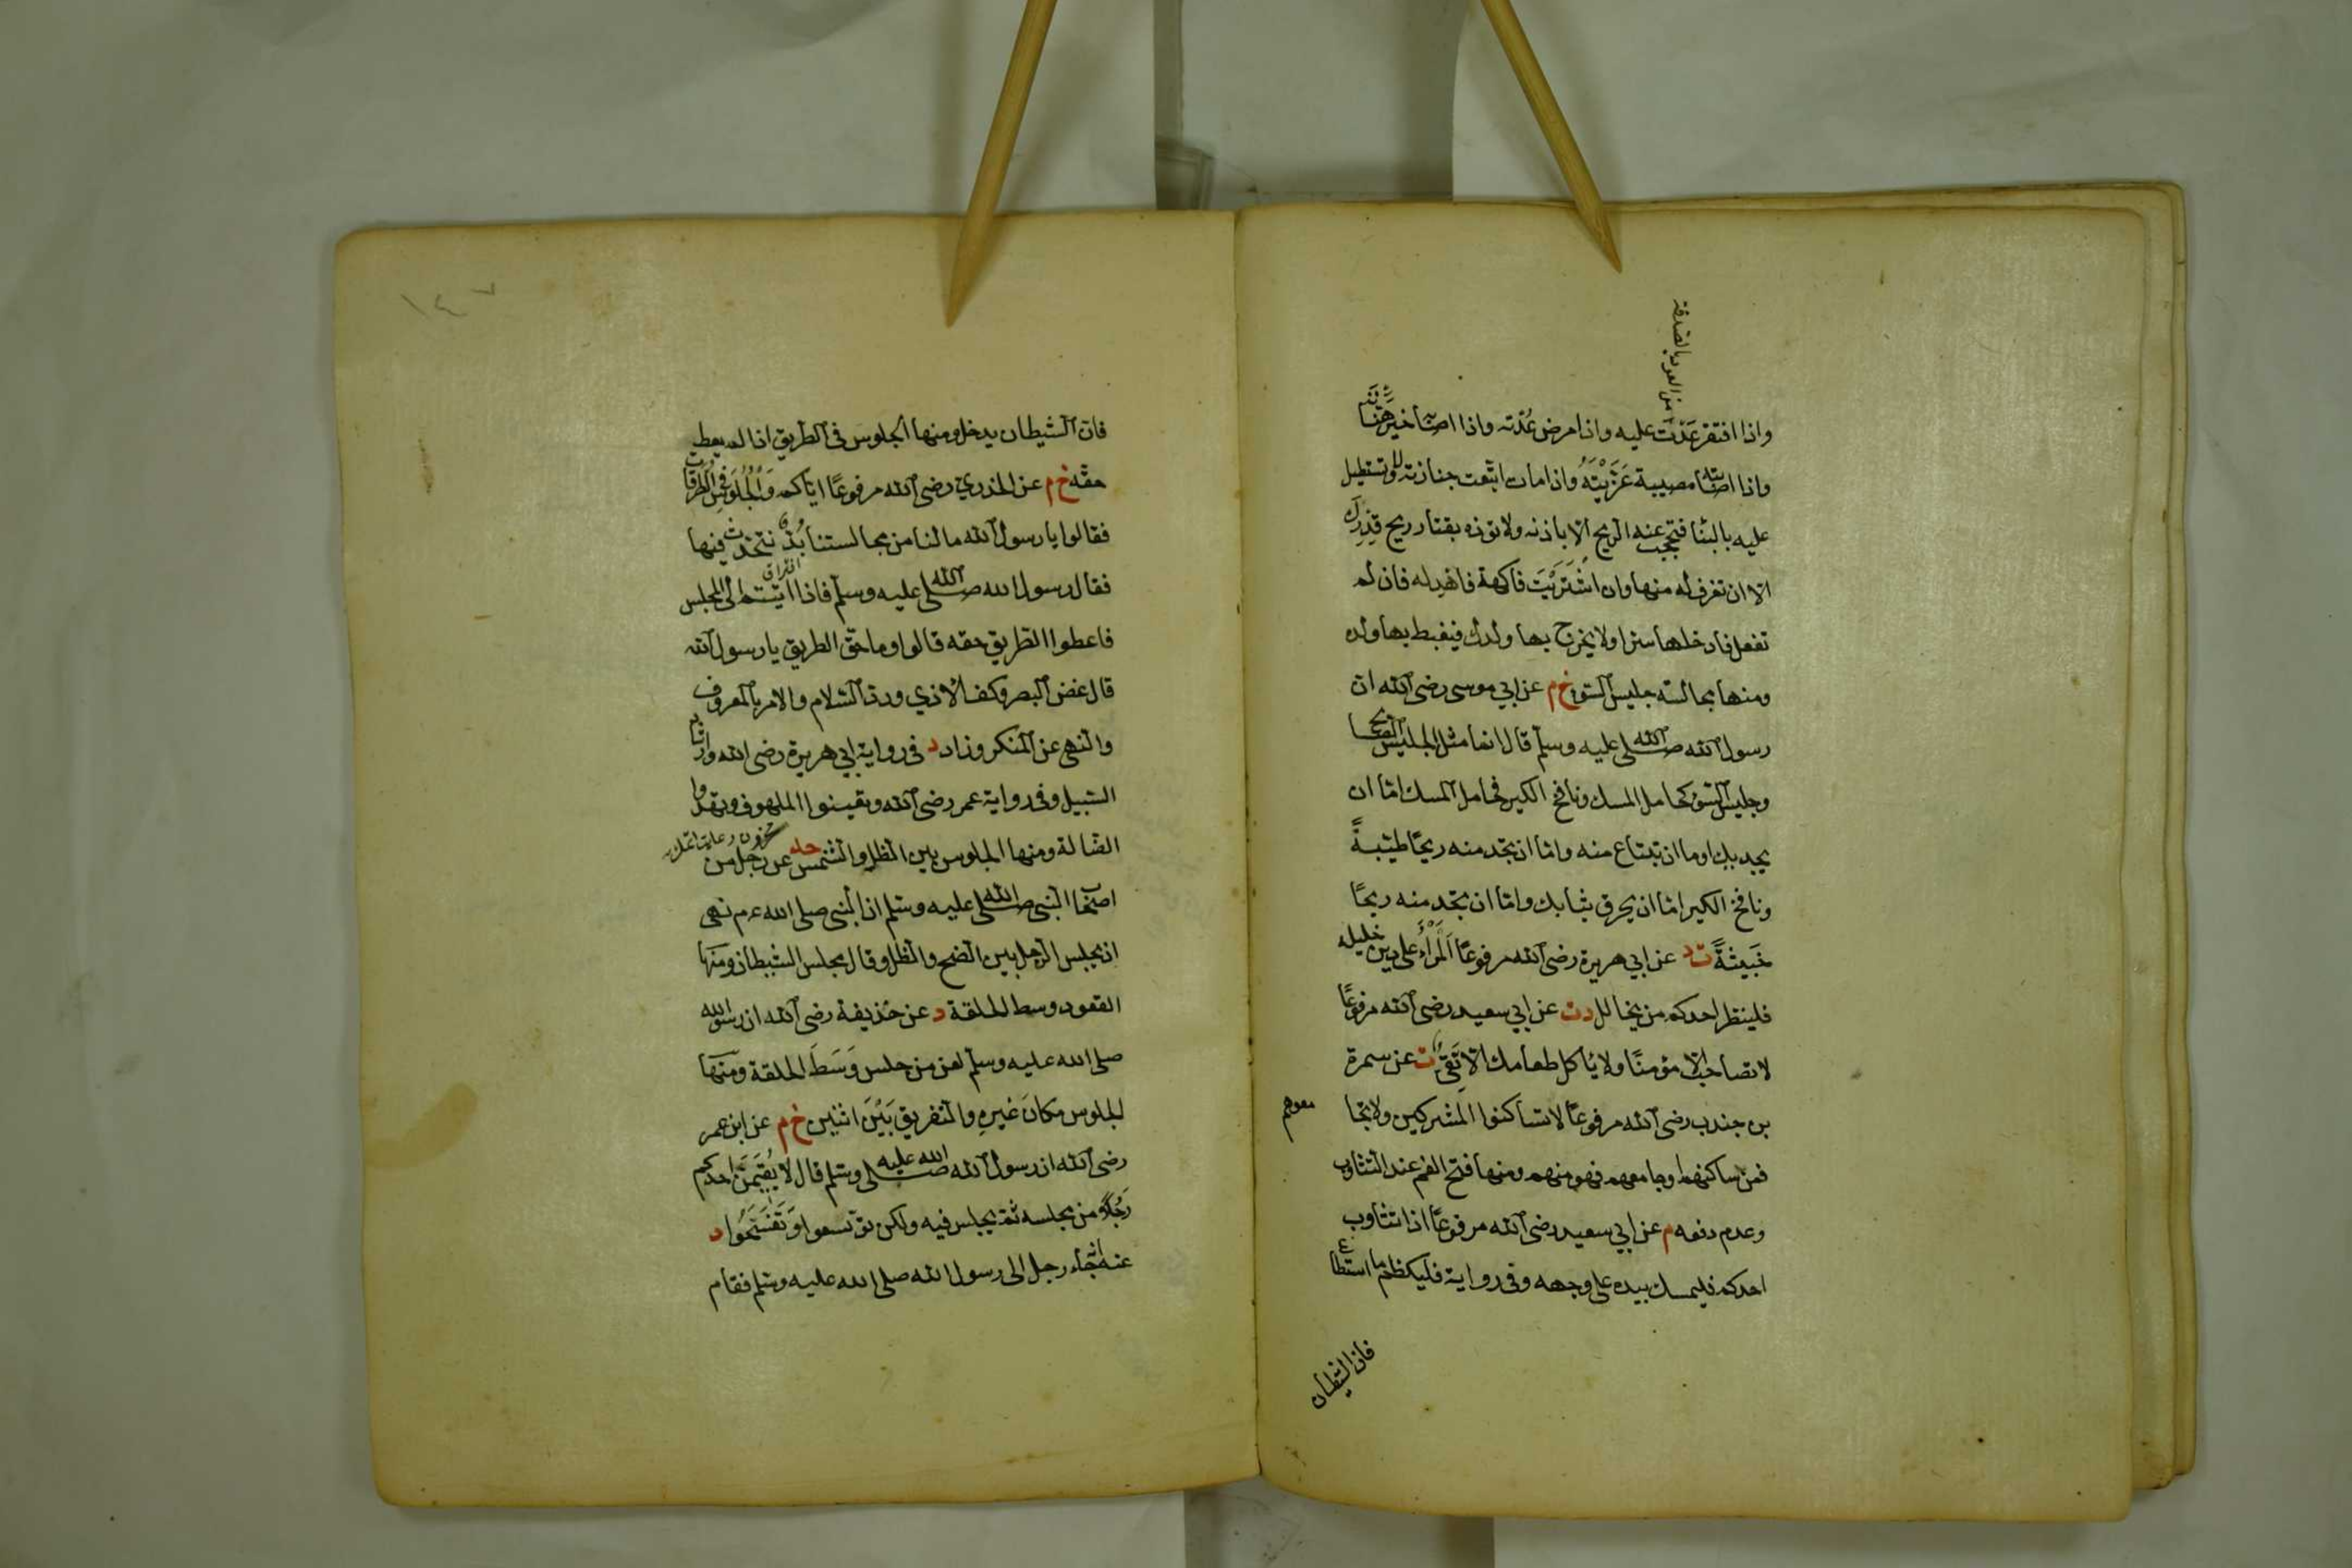 من العود بالصدقة
واذا افتقر عدت عليه واذا مرض عُدْته واذا اصابه خير هَنَّأته
واذا اصابته مصيبة عَزَّيْتَهُ واذا مات اتبعت جنازته ولا تستطيل
عليه بالبنا فتحجب عنه الريح الا باذنه ولا توذه بقتار ريح قِدْرِك
الا ان تغرف له منها وان اشْتَرَيْتَ فاكهة فاهد له فان لم
تفعل فادخلها سترا ولا يخرج بها ولدك فيغبط بها ولده
ومنها مجالسة جليس السوء خ م عن ابي موسى رضى الله ان
رسول الله صلى الله عليه وسلم قال انما مثل الجليس الصالح
وجليس السوء كحامل المسك ونافخ الكير فحامل المسك امّا ان
يجديك اوما ان تبتاع منه وامّا ان تجد منه ريحًا طيّبةً
ونافخ الكير امّا ان يحرق ثيابك وامّا ان تجد منه ريحًا
خَبيثةً ت د عن ابي هريرة رضى الله مرفوعًا اَلْمَرْأُ على دين خليله
فلينظر احدكم من يخالل د ت عن ابي سعيد رضى الله مرفوعًا
لا تصاحب الا مؤمنًا ولا يأكل طعامك الا تَقيٌّ ت عن سمرة
بن جندب رضى الله مرفوعًا لا تساكنوا المشركين ولا تجا
معوهم
فمن ساكنهم او جامعهم فهو منهم ومنها فتح الفم عند التثاوب
وعدم دفعه م عن ابي سعيد رضى الله مرفوعًا اذا تثاوب
احدكم فليمسك بيده على وجهه وفى رواية فليكظم ما استطاع
فان الشيطان
١٤٧
فان الشيطان يدخل ومنها الجلوس فى الطريق اذا لم يعط
حقه خ م عن الخدري رضى الله مرفوعًا اياكم وَالْجُلُوسَ فِى الطُّرُقَاتِ
فقالوا يا رسول الله ما لنا من مجالستنا بُدٌّ نتحدث فيها
فقال رسول الله صلى الله عليه وسلم فاذا اتيتم الى المجلس
فاعطوا الطريق حقه قالوا وما حق الطريق يا رسول الله
قال غض البصر وكف الاذي ورد السلام والامر بالمعروف
والنهى عن المنكر وزاد د فى رواية ابي هريرة رضى الله وارشاد
السبيل وفى رواية عمر رضى الله وتغيثوا الملهوف وتهدوا
الضالة ومنها الجلوس بين الظل والشمس حد عن رجل من
اصحاب النبى صلى الله عليه وسلم ان النبى صلى الله عم نهى
ان يجلس الرجل بين الضح والظل وقال مجلس الشيطان ومنها
القعود وسط الحلقة د عن حذيفة رضى الله ان رسول الله
صلى الله عليه وسلم لعن من جلس وَسَطَ الحلقة ومنها
الجلوس مكانَ غيرِهِ والتفريق بَيْنَ اثنين خ م عن ابن عمر
رضى الله ان رسول الله صلى الله عليه وسلم قال لا يُقيمَنَّ احدكم
رَجُلًا من مجلسه ثم يجلس فيه ولكن توسعوا وَتَفَسَّحُوا د
عنه انه جاء رجل الى رسول الله صلى الله عليه وسلم فقام